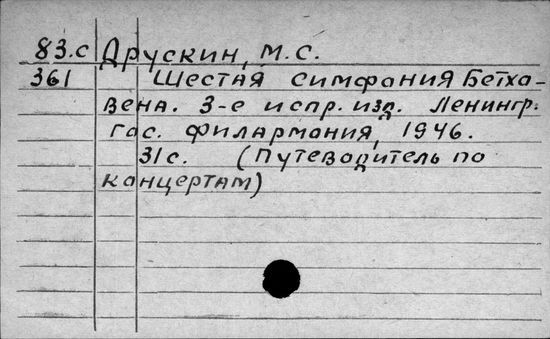 83.с Друскин, М.С.
361 Шестая симфания Бетха-
вена. 3-е испр. изд. Ленингр.
гос. филармония, 1946.
31 с. (Путеводитель по
концертам)